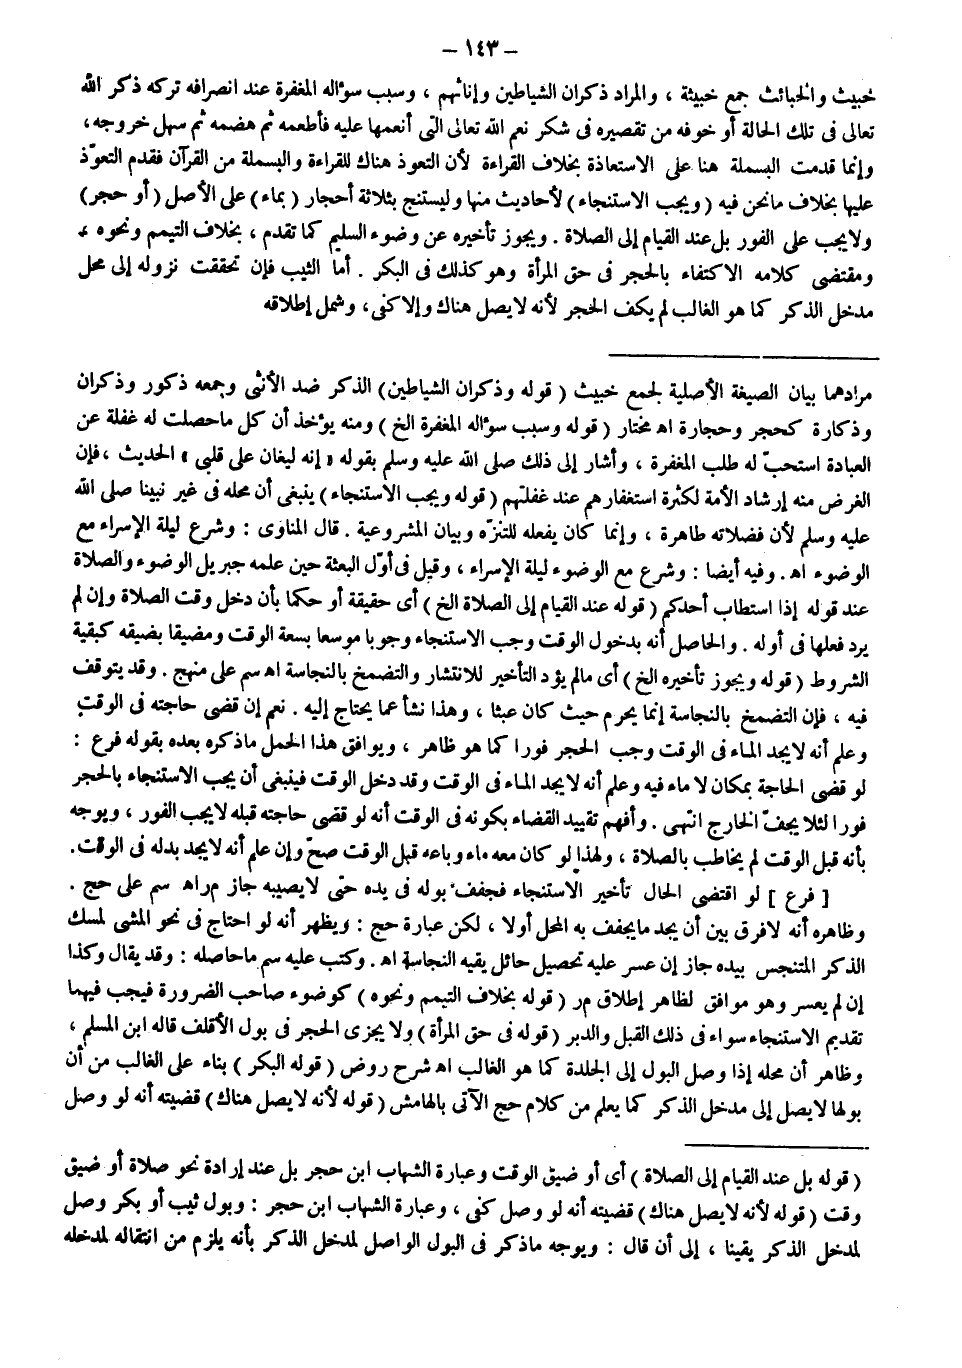 – ١٤٣ –
خبيث والخبائث جمع خبيثة ، والمراد ذكران الشياطين وإناثهم ، وسبب سؤاله المغفرة عند انصرافه تركه ذكر الله
تعالى فى تلك الحالة أو خوفه من تقصيره فى شكر نعم الله تعالى التى أنعمها عليه فأطعمه ثم هضمه ثم سهل خروجه ،
وإنما قدمت البسملة هنا على الاستعاذة بخلاف القراءة لأن التعوذ هناك للقراءة والبسملة من القرآن فقدم التعوّذ
عليها بخلاف مانحن فيه ( ويجب الاستنجاء ) لأحاديث منها وليستنج بثلاثة أحجار ( بماء ) على الأصل ( أو حجر )
ولايجب على الفور بل عند القيام إلى الصلاة . ويجوز تأخيره عن وضوء السليم كما تقدم ، بخلاف التيمم ونحوه ،
ومقتضى كلامه الاكتفاء بالحجر فى حق المرأة وهو كذلك فى البكر . أما الثيب فإن تحققت نزوله إلى محل
مدخل الذكر كما هو الغالب لم يكف الحجر لأنه لايصل هناك وإلا كفى ، وشمل إطلاقه
مرادهما بيان الصيغة الأصلية لجمع خبيث ( قوله وذكران الشياطين ) الذكر ضد الأنثى وجمعه ذكور وذكران
وذكارة كحجر وحجارة اه مختار ( قوله وسبب سؤاله المغفرة الخ ) ومنه يؤخذ أن كل ماحصلت له غفلة عن
العبادة استحبّ له طلب المغفرة ، وأشار إلى ذلك صلى الله عليه وسلم بقوله « إنه ليغان على قلبى » الحديث ، فإن
الغرض منه إرشاد الأمة لكثرة استغفارهم عند غفلتهم ( قوله ويجب الاستنجاء ) ينبغى أن محله فى غير نبينا صلى الله
عليه وسلم لأن فضلاته طاهرة ، وإنما كان يفعله للتنزّه وبيان المشروعية . قال المناوى : وشرع ليلة الإسراء مع
الوضوء اه . وفيه أيضا : وشرع مع الوضوء ليلة الإسراء ، وقيل فى أوّل البعثة حين علمه جبريل الوضوء والصلاة
عند قوله إذا استطاب أحدكم ( قوله عند القيام إلى الصلاة الخ ) أى حقيقة أو حكما بأن دخل وقت الصلاة وإن لم
يرد فعلها فى أوله . والحاصل أنه بدخول الوقت وجب الاستنجاء وجوبا موسعا بسعة الوقت ومضيقا بضيقه كبقية
الشروط ( قوله ويجوز تأخيره الخ ) أى مالم يؤد التأخير للانتشار والتضمخ بالنجاسة اه سم على منهج . وقد يتوقف
فيه ، فإن التضمخ بالنجاسة إنما يحرم حيث كان عبثا ، وهذا نشأ عما يحتاج إليه . نعم إن قضى حاجته فى الوقت
وعلم أنه لايجد الماء فى الوقت وجب الحجر فورا كما هو ظاهر ، ويوافق هذا الحمل ماذكره بعده بقوله فرع :
لو قضى الحاجة بمكان لا ماء فيه وعلم أنه لايجد الماء فى الوقت وقد دخل الوقت فينبغى أن يجب الاستنجاء بالحجر
فورا لئلا يجفّ الخارج انتهى . وأفهم تقييد القضاء بكونه فى الوقت أنه لو قضى حاجته قبله لايجب الفور ، ويوجه
بأنه قبل الوقت لم يخاطب بالصلاة ، ولهذا لو كان معه ماء وباعه قبل الوقت صحّ وإن علم أنه لايجد بدله فى الوقت .
[ فرع ] لو اقتضى الحال تأخير الاستنجاء فجفف بوله فى يده حتى لايصيبه جاز م ر اه سم على حج .
وظاهره أنه لافرق بين أن يجد مايجفف به المحل أولا ، لكن عبارة حج : ويظهر أنه لو احتاج فى نحو المشى لمسك
الذكر المتنجس بيده جاز إن عسر عليه تحصيل حائل يقيه النجاسة اه . وكتب عليه سم ماحاصله : وقد يقال وكذا
إن لم يعسر وهو موافق لظاهر إطلاق م ر ( قوله بخلاف التيمم ونحوه ) كوضوء صاحب الضرورة فيجب فيهما
تقديم الاستنجاء سواء فى ذلك القبل والدبر ( قوله فى حق المرأة ) ولا يجزى الحجر فى بول الأقلف قاله ابن المسلم ،
وظاهر أن محله إذا وصل البول إلى الجلدة كما هو الغالب اه شرح روض ( قوله البكر ) بناء على الغالب من أن
بولها لايصل إلى مدخل الذكر كما يعلم من كلام حج الآتى بالهامش ( قوله لأنه لايصل هناك ) قضيته أنه لو وصل
( قوله بل عند القيام إلى الصلاة ) أى أو ضيق الوقت وعبارة الشهاب ابن حجر بل عند إرادة نحو صلاة أو ضيق
وقت ( قوله لأنه لايصل هناك ) قضيته أنه لو وصل كفى ، وعبارة الشهاب ابن حجر : وبول ثيب أو بكر وصل
لمدخل الذكر يقينا ، إلى أن قال : ويوجه ماذكر فى البول الواصل لمدخل الذكر بأنه يلزم من انتقاله لمدخله